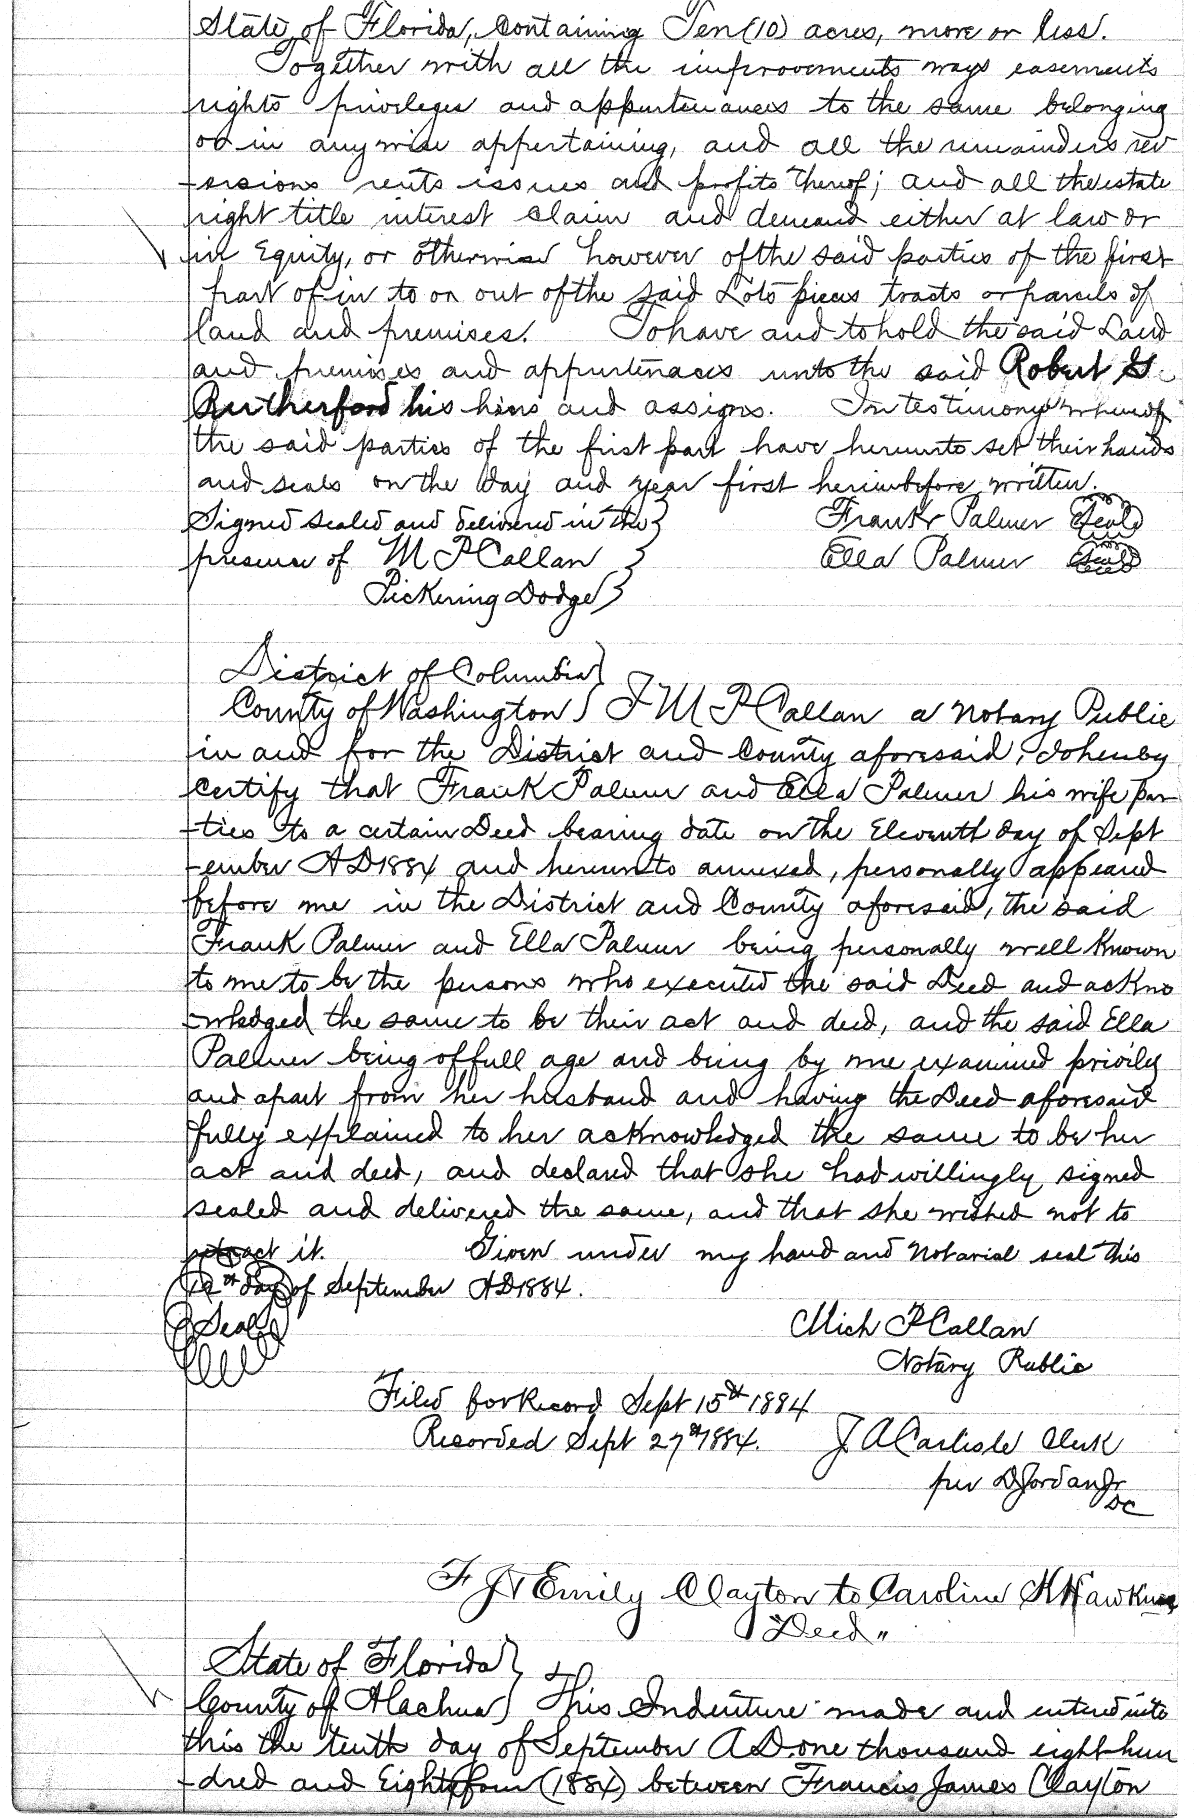 State of Florida, containing Ten (10) acres, more or less.
Together with all the improvements ways easements
rights privileges and appurtenances to the same belonging
or in anywise appertaining, and all the remainders rev
-ersions rents issues and profits thereof; and all the estate
right title interest claim and demand either at law or
in Equity, or otherwise however of the said parties of the first
part of in to or out of the said Lots pieces tracts or parcels of
land and premises. To have and to hold the said Land
and premises and appurtenaces unto the said Robert G.
Rutherford his heirs and assigns. In testimony whereof
the said parties of the first part have hereunto set their hands
and seals on the day and year first hereinbefore written.
Signed sealed and delivered in the } Frank Palmer Seal
presence of M P Callan } Ella Palmer Seal
Pickering Dodge }
District of Columbia }
County of Washington } I M P Callan a Notary Public
in and for the District and County aforesaid, do hereby
certify that Frank Palmer and Ella Palmer his wife par
-ties to a certain Deed bearing date on the Eleventh day of Sept
-ember AD 1884 and hereunto annexed, personally appeared
before me in the District and County aforesaid, the said
Frank Palmer and Ella Palmer being personally well known
to me to be the persons who executed the said Deed and ackno
-wledged the same to be their act and deed, and the said Ella
Palmer being of full age and being by me examined privily
and apart from her husband and having the Deed aforesaid
fully explained to her acknowledged the same to be her
act and deed, and declared that she had willingly signed
sealed and delivered the same, and that she wished not to
retract it. Given under my hand and Notarial seal this
12th day of September AD 1884.
Seal Mich P Callan
Notary Public
Filed for Record Sept 15th 1884
Recorded Sept 27th 1884. J A Carlisle Clerk
per D Jordan Jr
DC
F J & Emily Clayton to Caroline H Hawkins
Deed "
State of Florida }
County of Alachua } This Indenture made and entered into
this the tenth day of September A.D. one thousand eight hun
-dred and Eighty four (1884) between Francis James Clayton